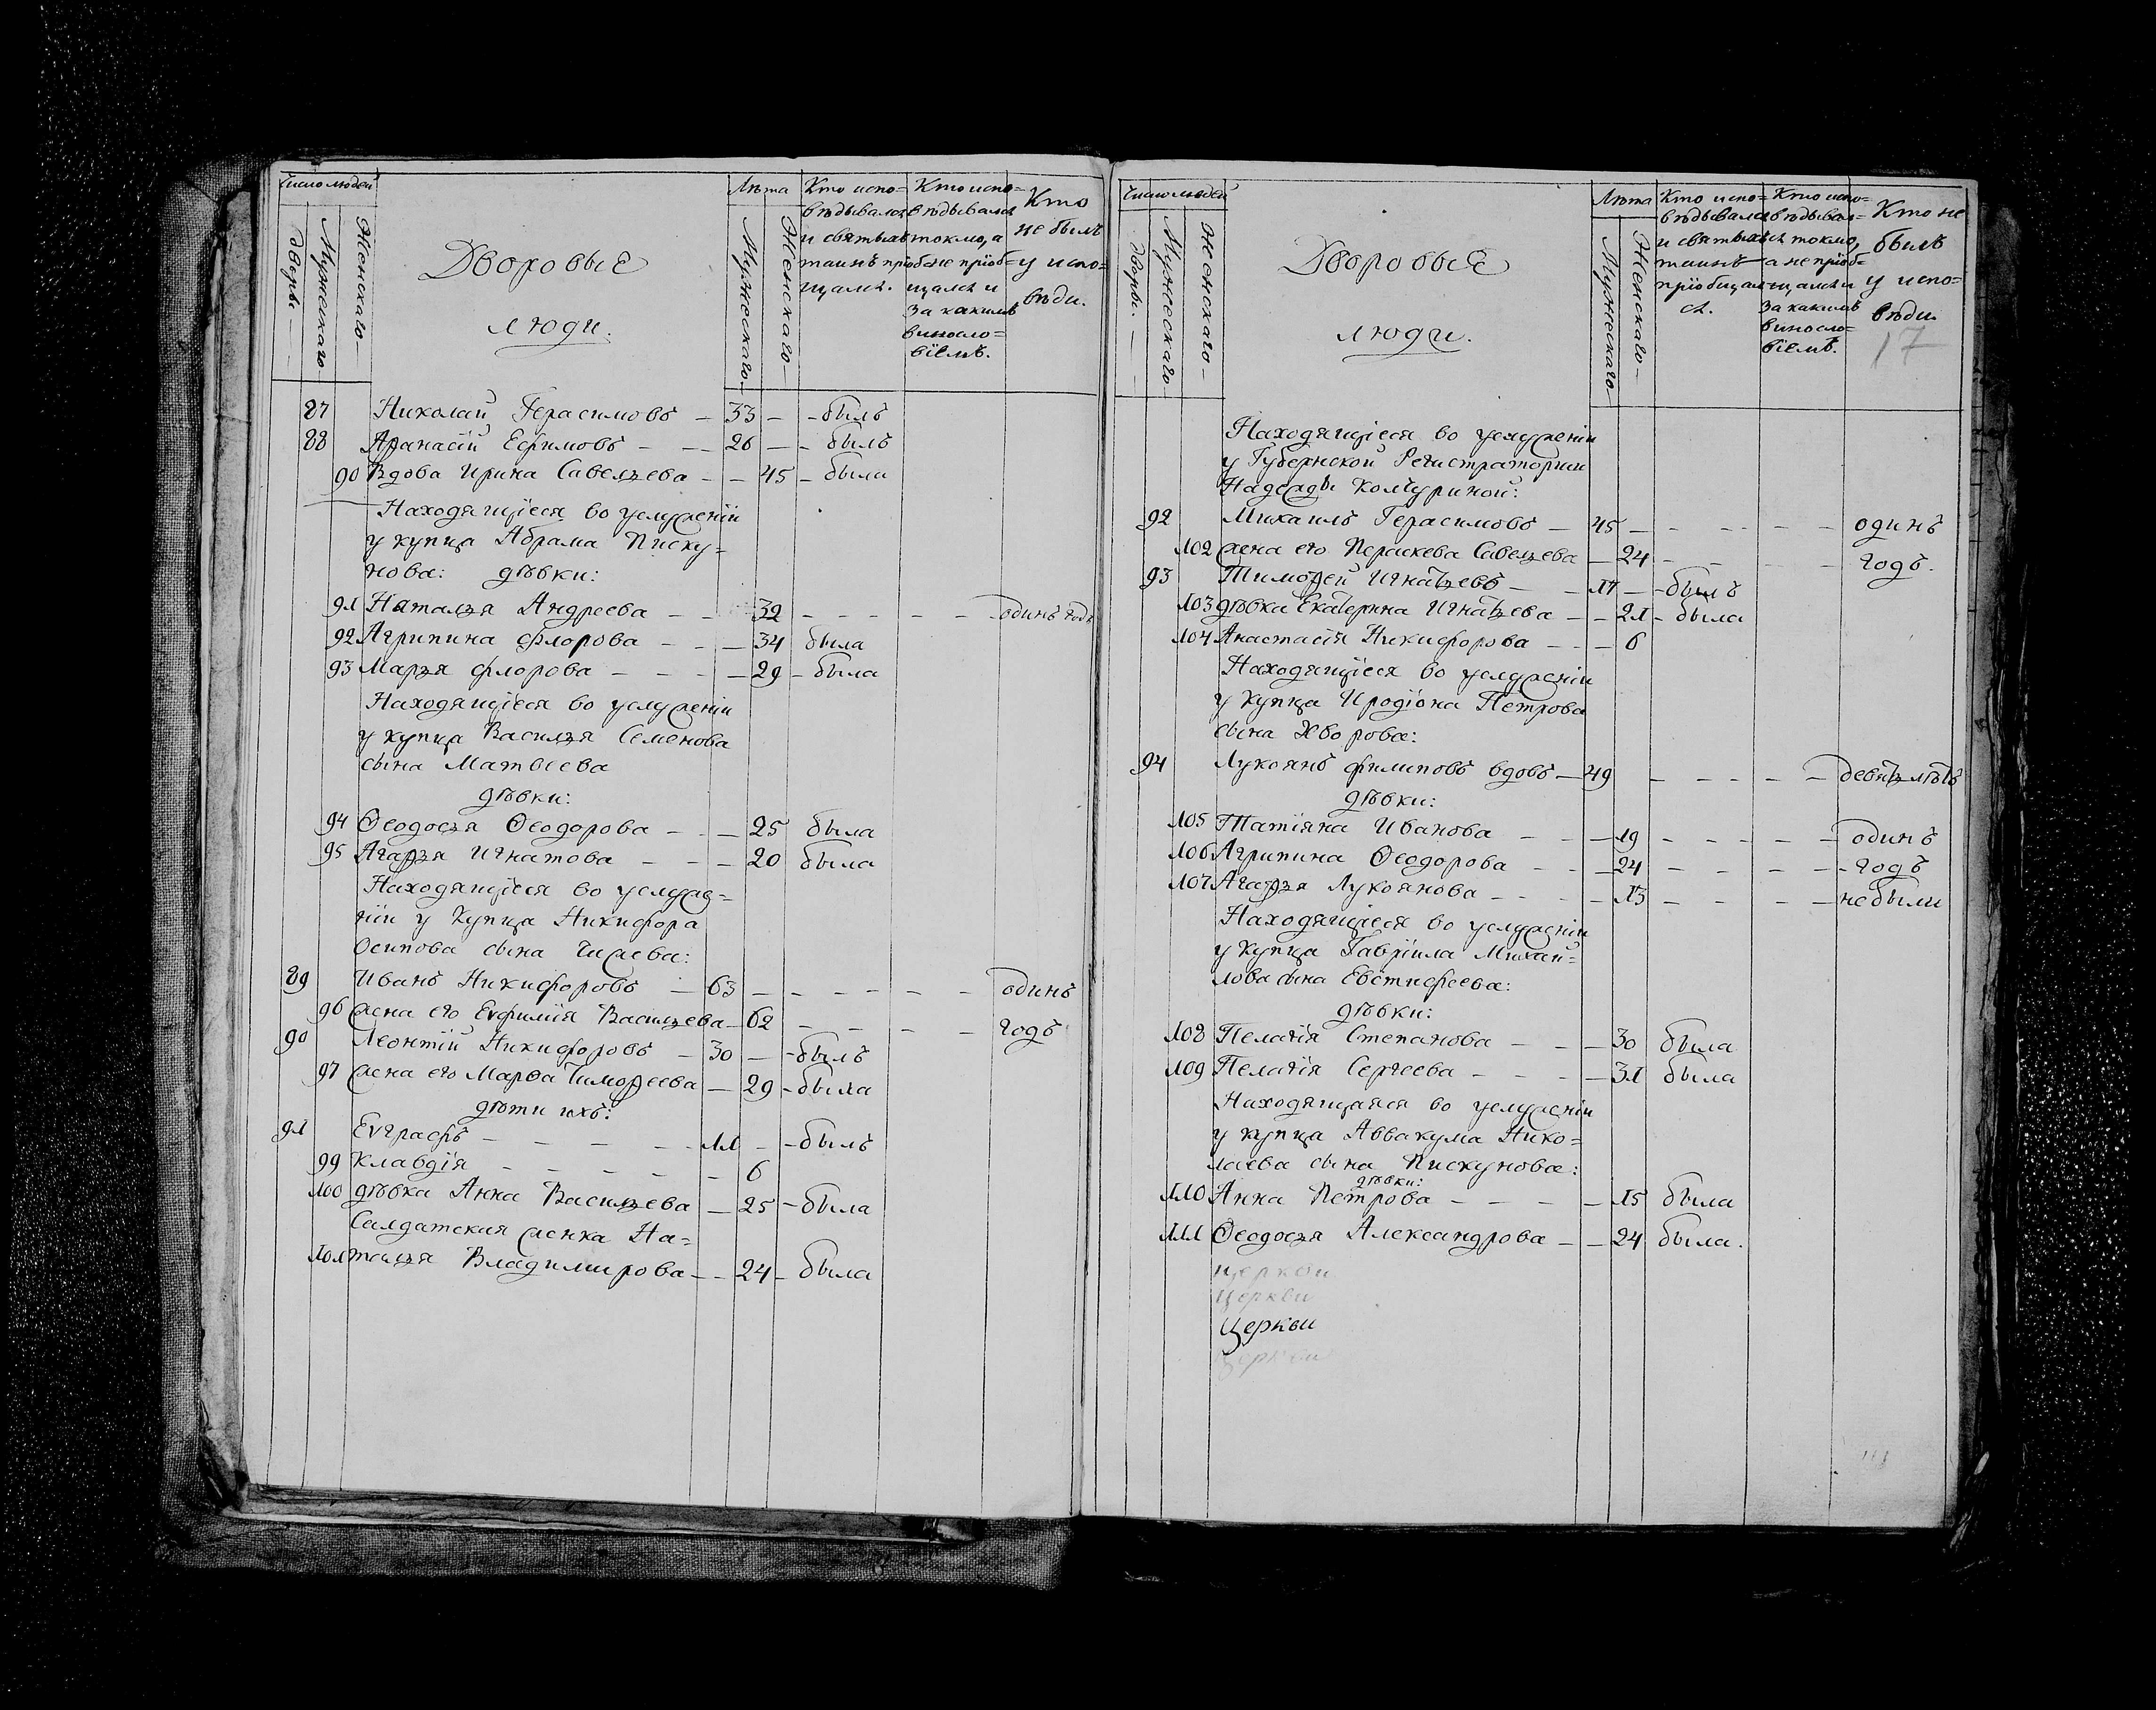 Число людей
дворы.
Мужескаго
Женскаго
Дворовые
люди.
Лѣта
Мужескаго.
Женскаго
Кто испо=
вѣдывался
и святыхъ
таинъ пріоб=
щался.
Кто испо=
вѣдывался
токмо, а
не пріоб=
щался и
за какимъ
виносло=
віемъ.
Кто
не былъ
у испо=
вѣди.
87 Николай Герасимовъ — 33 — - былъ
88 Аѳанасій Ефимовъ — — 26 — - былъ
90 Вдова Ирина Савельева - — 45 - была
Находящіеся во услуженіи
у купца Абрама Писку=
нова: дѣвки:
91 Наталья Андреева — — 32 - - - - - одинъ годъ
92 Агрипина Флорова - - — 34 была
93 Марья Флорова - - - — 29 - была
Находящіеся во услуженіи
у купца Василья Семенова
сына Матвѣева
дѣвки:
94 Ѳеодосья Ѳеодорова - - — 25 была
95 Агафья Игнатова - - — 20 была
Находящіеся во услуже=
ніи у Купца Никифора
Осипова сына Чижева:
89 Иванъ Никифоровъ — 63 — - - - - - одинъ
96 жена его Евфимія Васильева — 62 - - - - годъ
90 Леонтій Никифоровъ — 30 — - былъ
97 жена его Марѳа Тимофеева — 29 - была
дѣти ихъ:
91 Евграфъ - - - - — 11 - - былъ
99 Клавдія - - - - - 6
100 дѣвка Анна Васильева — 25 - была
Салдатская женка На=
101 талья Владимирова - - 24 - была
Число людей
дворы.
Мужескаго
Женскаго
Дворовые
люди.
Лѣта
Мужескаго
Женскаго
Кто испо=
вѣдывался
и святыхъ
таинъ
пріобщал
ся.
Кто испо=
вѣдывал=
ся токмо,
а не пріоб=
щался и
за какимъ
винослo=
віемъ.
Кто не
былъ
у испо=
вѣди.
17
Находящіеся во услуженіи
у Губернской Регистраторши
Надежды Комъуриной:
92 Михаилъ Герасимовъ — 45 — - - - - - одинъ
102 жена его Параскева Савельева — 24 - - - - годъ.
93 Тимофей Игнатьевъ — — 17 — - былъ
103 дѣвка Екатерина Игнатьева - - 21 - была
104 Анастасія Никифорова - - - 6
Находящіеся во услуженіи
у Купца Иродіона Петрова
сына Хворова:
94 Лукоянъ Филиповъ вдовъ — 49 - - - - - девять лѣтъ
дѣвки:
105 Татіяна Иванова - - — 19 - - - - - одинъ
106 Агрипина Ѳеодорова - - — 24 - - - - - годъ
107 Агафья Лукоянова - - - — 13 - - - - не были
Находящіеся во услуженіи
у Купца Гавріила Михай=
лова сына Евстифеева:
дѣвки:
108 Пелагія Степанова - - — 30 была
109 Пелагія Сергеева - - - — 31 была
Находящаяся во услуженіи
у купца Аввакума Нико=
лаева сына Пискунова:
дѣвки:
110 Анна Петрова - - - — 15 была
111 Ѳеодосья Александрова - - 24 была.
Церкви
Церкви
Церкви
Церкви